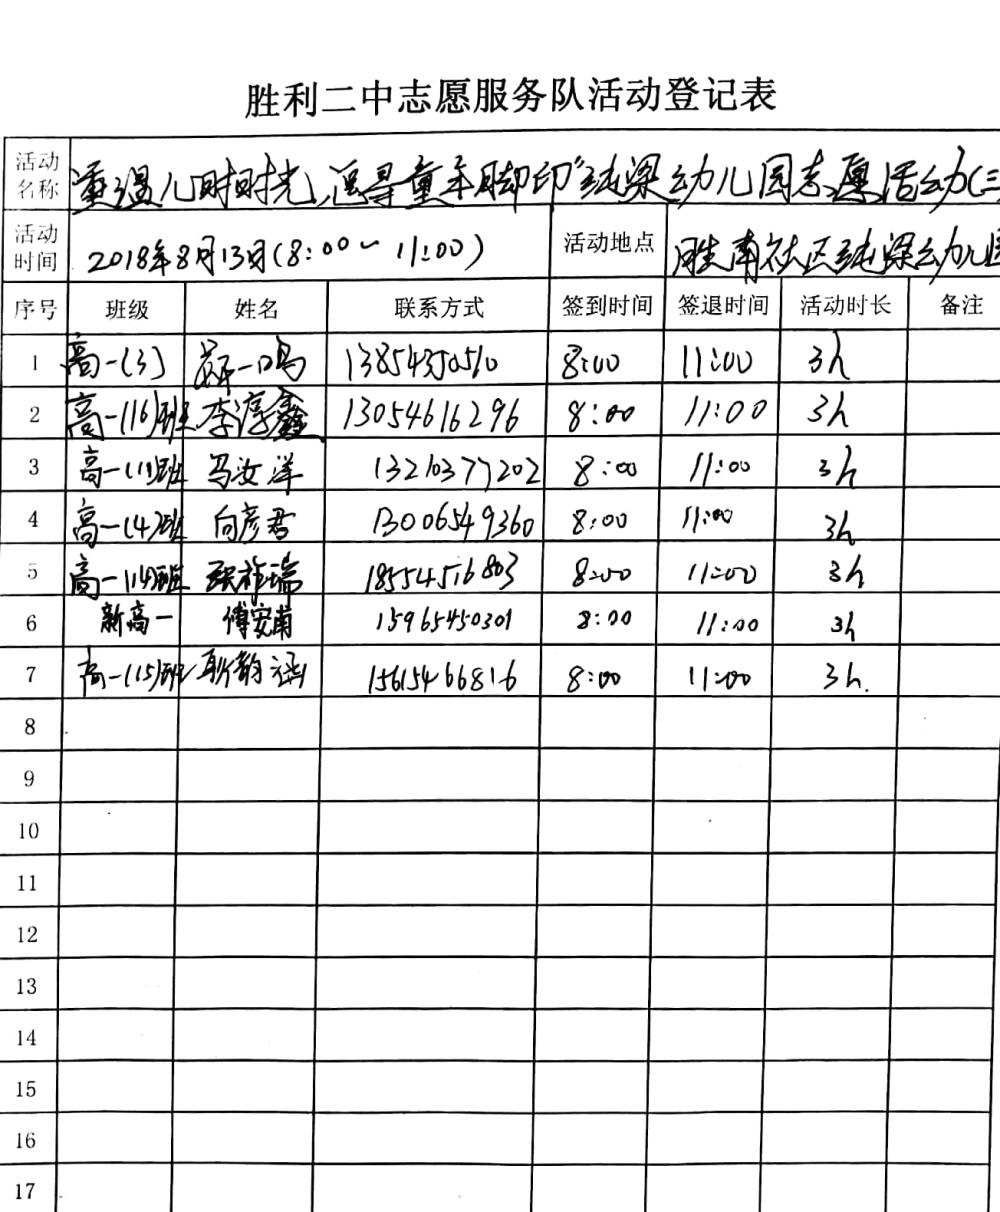 胜利二中志愿服务队活动登记表
活动名称 重温儿时时光,追寻童年脚印"纯梁幼儿园志愿活动(三
活动时间 2018年8月13日(8:00~11:00) 活动地点 胜南社区纯梁幼儿园
序号 班级 姓名 联系方式 签到时间 签退时间 活动时长 备注
1 高一(3) 一鸣 13854350510 8:00 11:00 3h
2 高一(16)班 李淳鑫 13054616296 8:00 11:00 3h
3 高一(11)班 马汝洋 13210377202 8:00 11:00 3h
4 高一(4)班 向彦君 13006549360 8:00 11:00 3h
5 高一(14)班 张祚瑞 18554516803 8:00 11:00 3h
6 新高一 傅安甫 15965450301 8:00 11:00 3h
7 高一(15)班 耿韵涵 15615466816 8:00 11:00 3h.
8
9
10
11
12
13
14
15
16
17